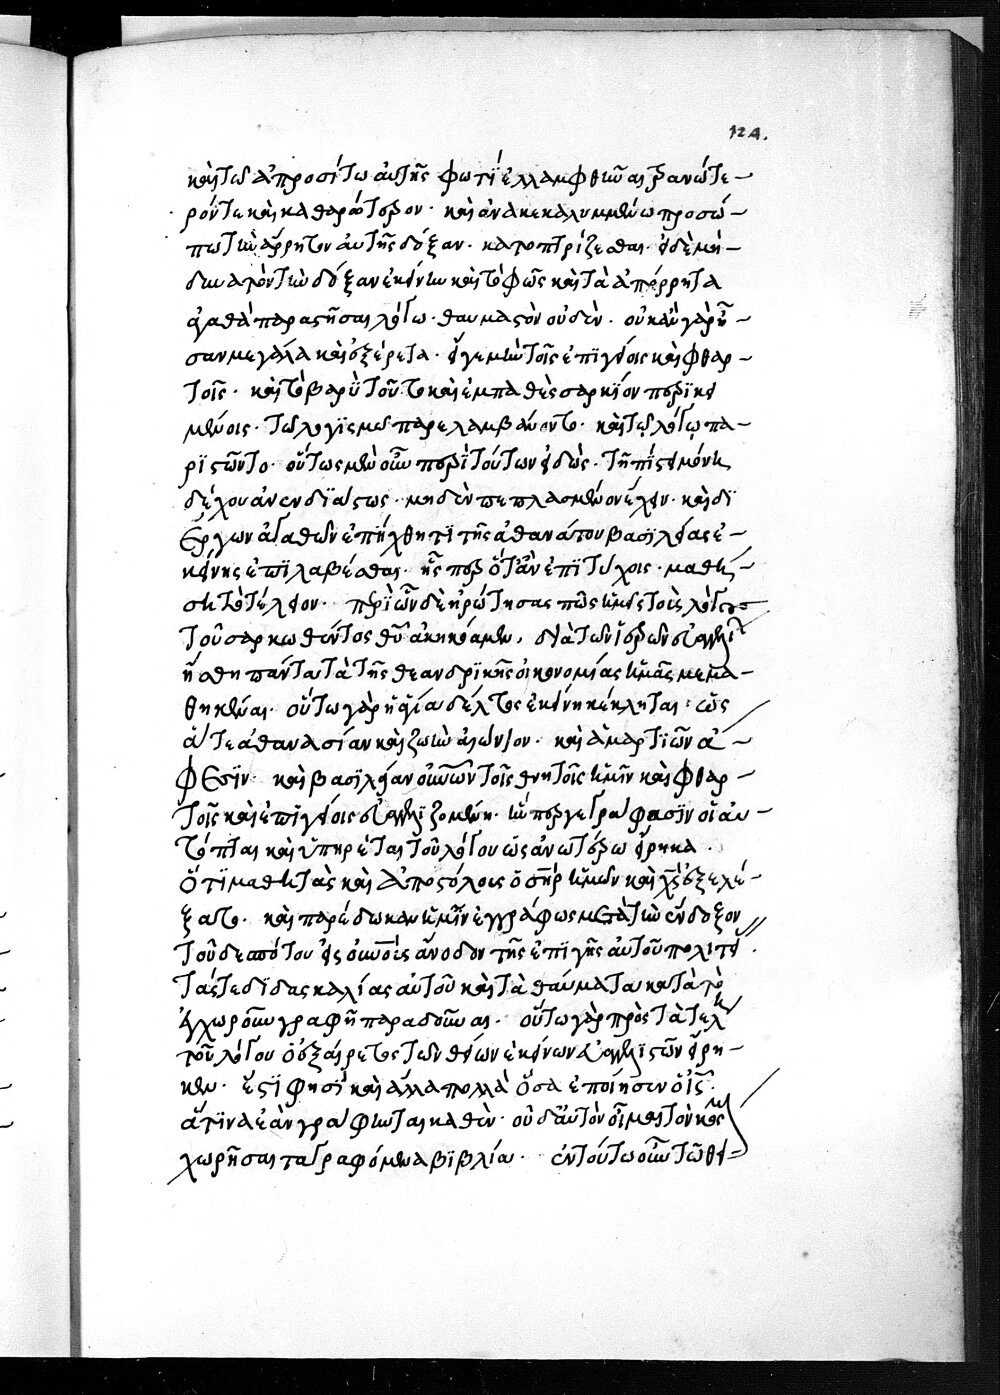 124.
καὶ τῷ ἀπροσίτω αὐτῆς φωτὶ ἐλλαμφθῆναι τρανώτε-
ρόν τε καὶ καθαρώτερον· καὶ ἀνακεκαλυμμένω προσώ-
πω τὴν ἄρρητον αὐτῆς δόξαν· κατοπτρίζεσθαι· εἰ δὲ μὴ
δυνατὸν τὴν δόξαν ἐκείνην καὶ τὸ φῶς καὶ τὰ ἀπόρρητα
ἀγαθὰ παραστῆσαι λόγω· θαυμαστὸν οὐδέν· οὐκ ἂν γὰρ ἦ-
σαν μεγάλα καὶ ἐξαίρετα· εἴγε μὴν τοῖς ἐπιγείοις καὶ φθαρ-
τοῖς· καὶ τὸ βαρὺ τοῦτο καὶ ἐμπαθὲς σαρκίον περικει
μένοις· τῷ λογισμῷ παρελαμβάνοντο· καὶ τῷ λόγῳ πα-
ριστῶντο· οὕτως μὲν οὖν περὶ τούτων εἰδώς· τῇ πίστει μόνη
δέχου ἀνενδοιάστως· μηδὲν πεπλασμένον ἔχειν· καὶ δι
ἔργων ἀγαθῶν ἐπείχθητι τῆς ἀθανάτου βασιλείας ἐ-
κείνης ἐπιλαβέσθαι· ἧς περ ὅταν ἐπιτύχοις· μαθή-
ση τὸ τέλειον· περὶ ὧν δὲ ἠρώτησας πῶς ἡμεῖς τοὺς λόγους
τοῦ σαρκωθέντος θῦ ἀκηκόαμεν, διὰ τῶν ἱερῶν εὐαγγελί
ἴσθι πάντα τὰ τῆς θεανδρικῆς οἰκονομίας ἡμᾶς μεμα-
θηκέναι· οὕτω γὰρ ἡ ἁγία δέλτος ἐκείνη κέκληται· ὡς
ἅτε ἀθανασίαν καὶ ζωὴν αἰώνιον· καὶ ἁμαρτιῶν ἄ-
φεσιν· καὶ βασιλείαν οὐνῶν τοῖς θνητοῖς ἡμῖν καὶ φθαρ-
τοῖς καὶ ἐπιγείοις εὐαγγελιζομένη· ἥν περ γεγράφασιν οἱ αὐ-
τόπται καὶ ὑπηρέται τοῦ λόγου ὡς ἀνωτέρω εἴρηκα·
ὅτι μαθητὰς καὶ ἀποστόλους ὁ σὴρ ἡμῶν καὶ χς ἐξελέ-
ξατο· καὶ παρέδωκαν ἡμῖν ἐγγράφως μετὰ τὴν ἔνδοξον
τοῦ δεσπότου εἰς οὐνοὺς ἄνοδον τῆς ἐπὶ γῆς αὐτοῦ πολιτεί
τάς τε διδασκαλίας αὐτοῦ καὶ τὰ θαύματα κατὰ τὸ
ἐγχωροῦν γραφῆ παραδοῦναι· οὕτω γὰρ πρὸς τὰ τέλη
τοῦ λόγου ὁ ἐξαίρετος τῶν θείων ἐκείνων εὐαγγελιστῶν εἴρη-
κεν· ἔστι φησὶ καὶ ἄλλα πολλὰ ὅσα ἐποίησεν ὁ ις·
ἅτινα ἐὰν γράφωνται καθἕν· οὐδ αὐτὸν οἶμαι τὸν κόσμ
χωρῆσαι τὰ γραφόμενα βιβλία· ἐν τούτω οὖν τῷ θει-